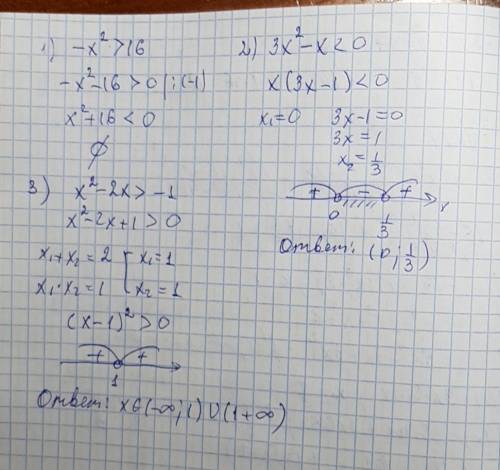 1) -x² > 16
-x² - 16 > 0 | : (-1)
x² + 16 < 0
∅
2) 3x² - x < 0
x (3x - 1) < 0
x₁ = 0 3x - 1 = 0
3x = 1
x₂ = 1/3
+ - +
0 1/3 x
Ответ: (0; 1/3)
3) x² - 2x > -1
x² - 2x + 1 > 0
x₁ + x₂ = 2 { x₁ = 1
x₁ · x₂ = 1 x₂ = 1
(x - 1)² > 0
+ +
1
Ответ: x ∈ (-∞; 1) ∪ (1 +∞)